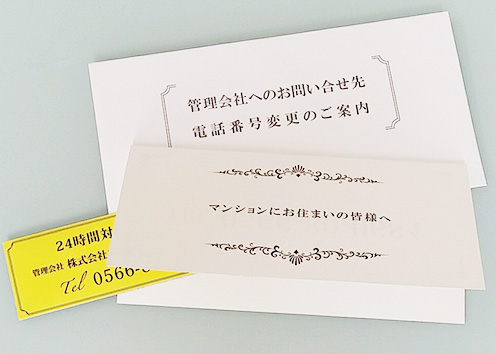 管理会社へのお問い合せ先
電話番号変更のご案内
マンションにお住まいの皆様へ
24時間対
管理会社 株式会社
Tel 0566-